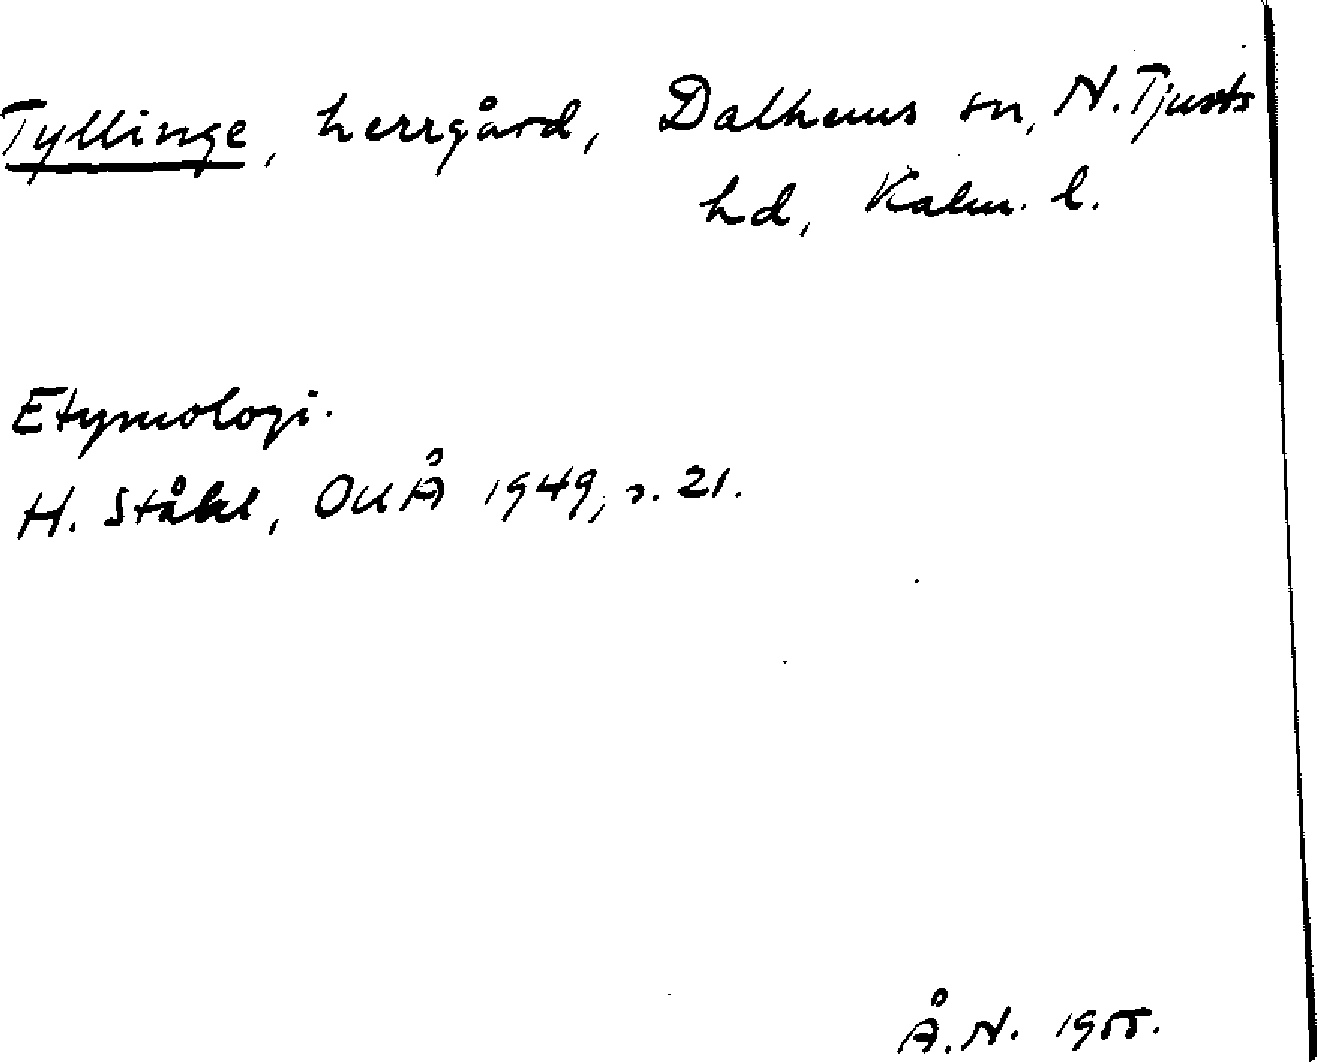 Tyllinge, herrgård, Dalhems sn, N. Tjusts
hd, Kalm. l.
Etymologi.
H. Ståhl, OUÅ 1949, s. 21.
Å. N. 1955.